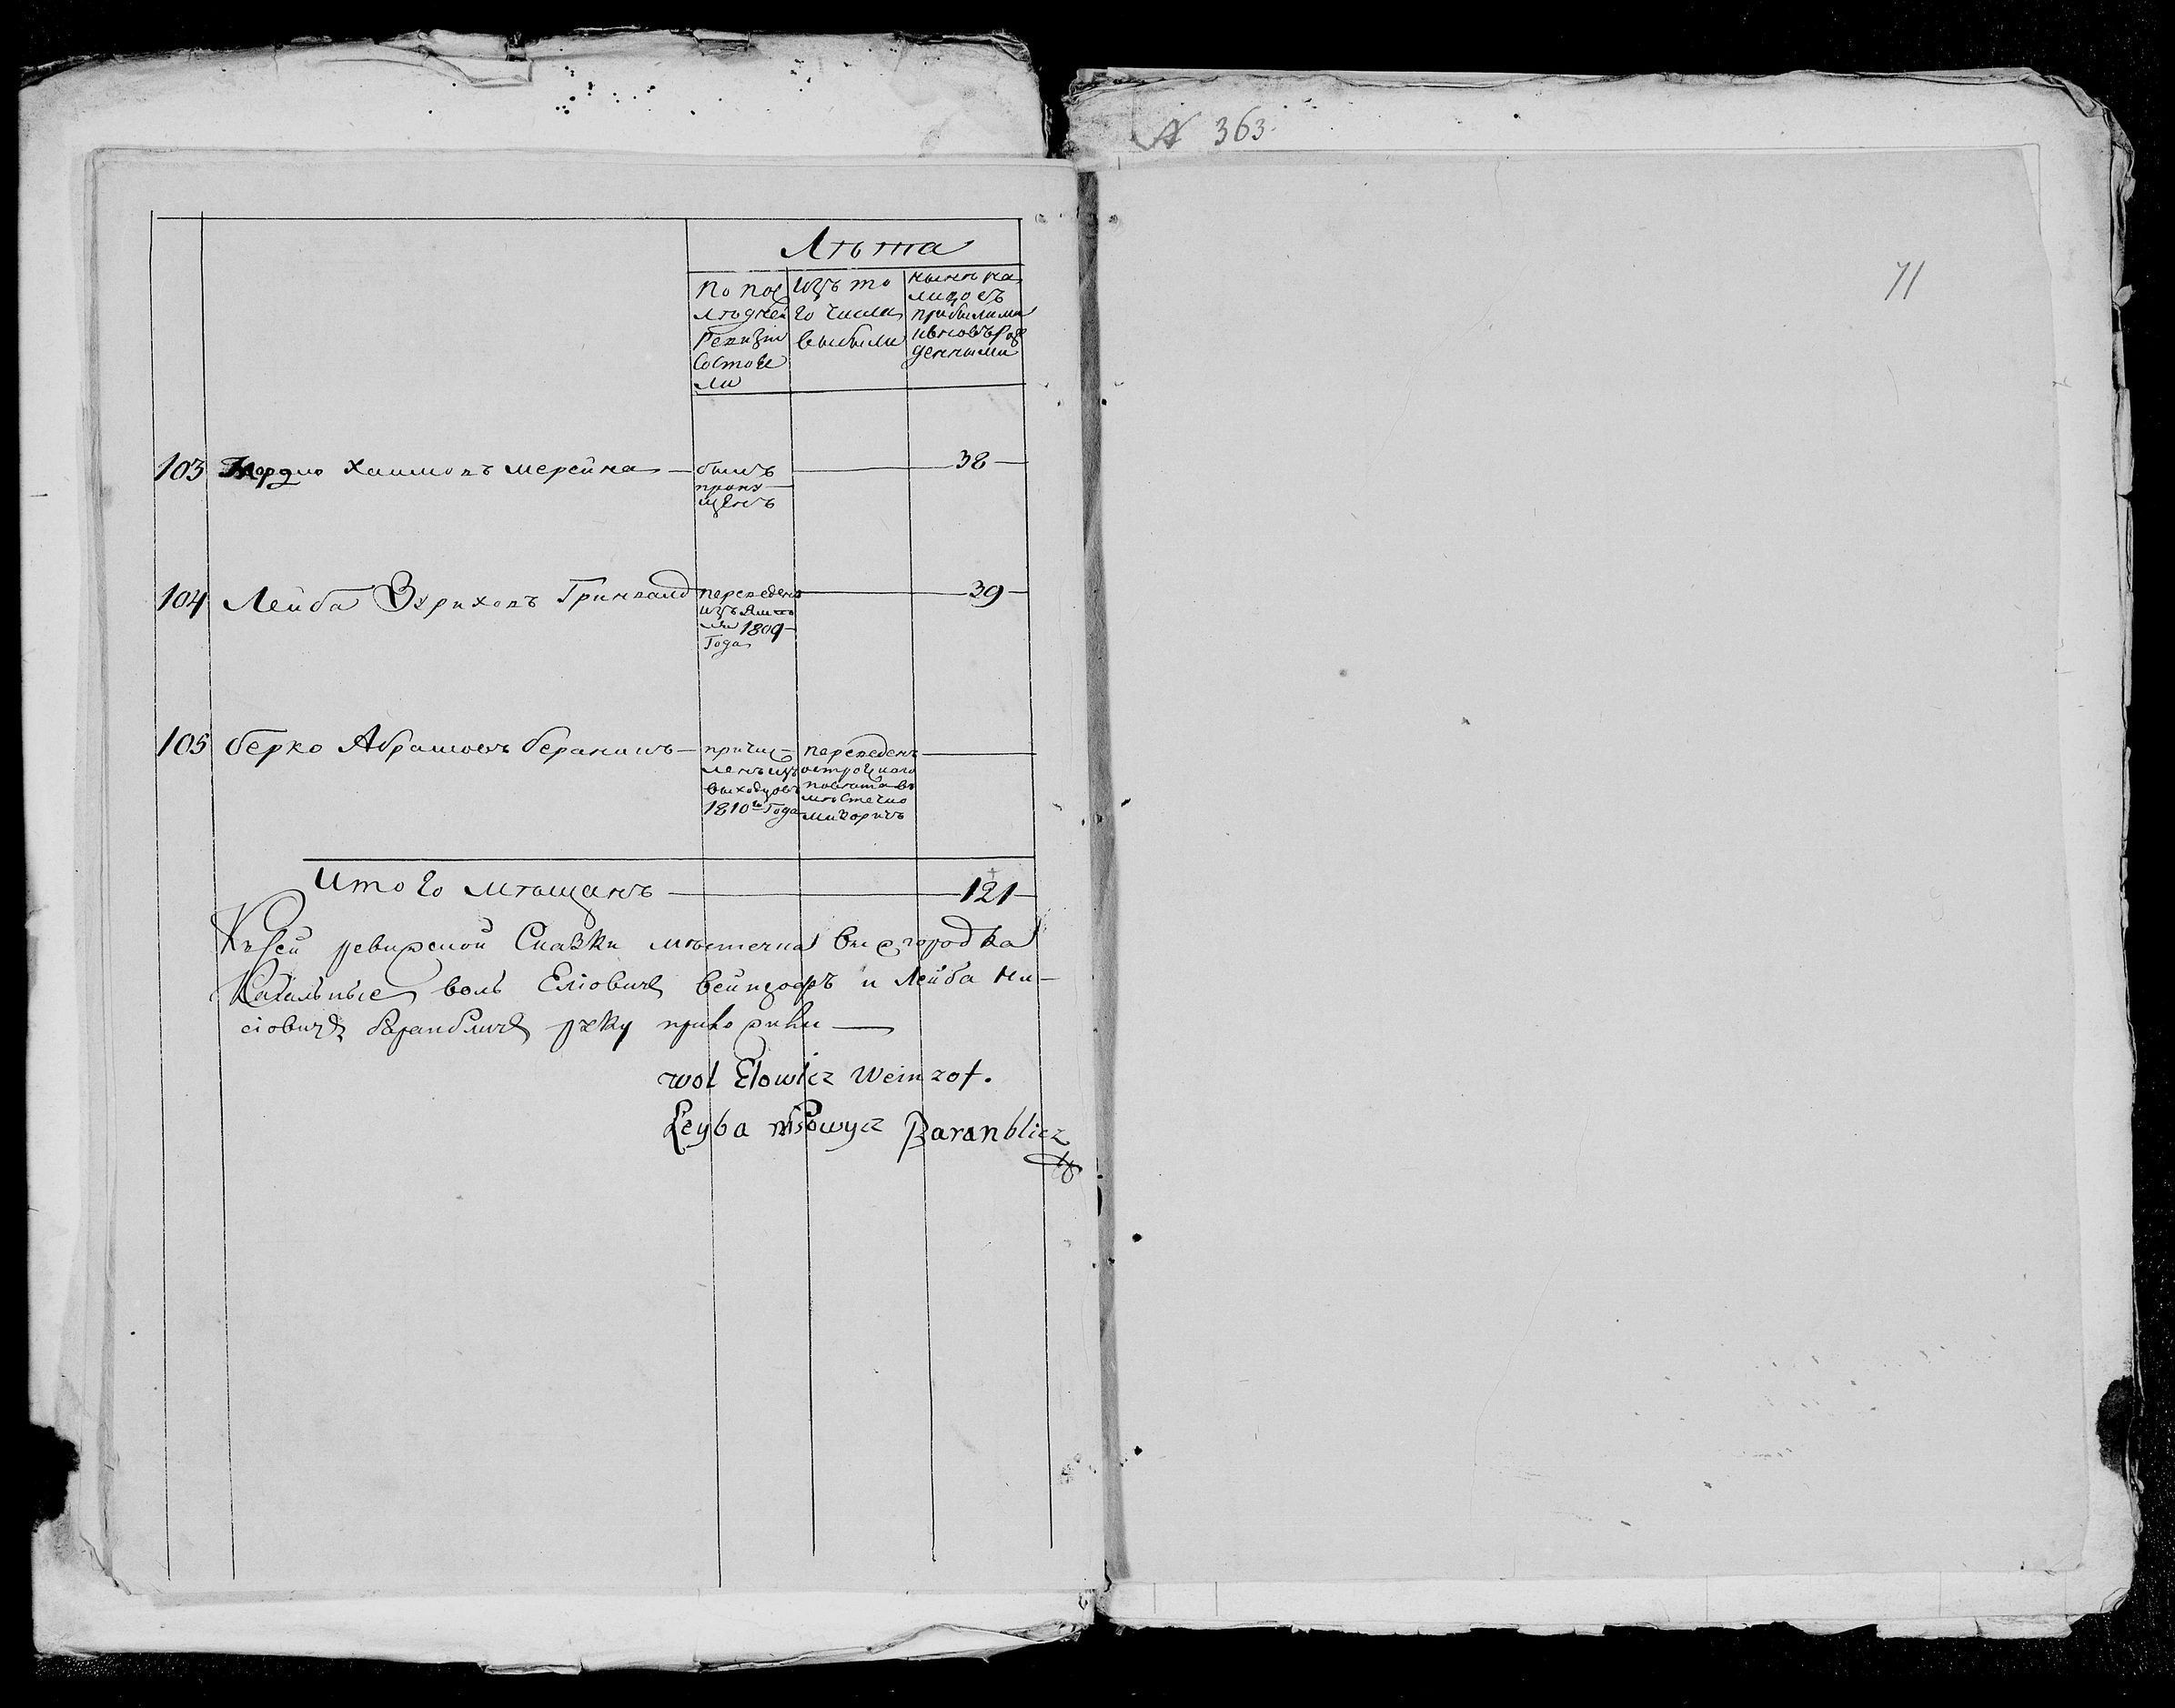 № 363.
71
Лѣта
По пос
лѣдней
Ревизіи
Состояе
ли
изъ то
го числа
выбыли
нынѣ на
лицо съ
прибылими
ивновь Рож
денными
103 Хаимовъ мерейна 38
былъ
пропу
щенъ
104 Лейба Зхриховъ Гринвалд 39
переведенъ
изъ
1809
Года
105 берко Абрамовъ
причис
ленъ изъ
выходцовъ
1810го Года
переведенъ
острожного
повѣта въ
мѣстечко
межоричъ
Итого мѣщанъ 121
Къ сей ревижской Сказки мѣстечка выжгородка
Кагальные волъ Еліовичъ вейнзофъ и Лейба Ни-
сіовичъ баранбличъ руку приложили
wol Elowicz Weinzof.
Leyba nisowycz Baranblicz